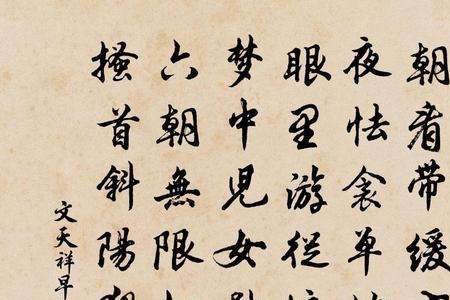 朝看帶緩
夜怯衾单
眼里游從
梦中児女
六朝無限
搔首斜陽
文天祥早